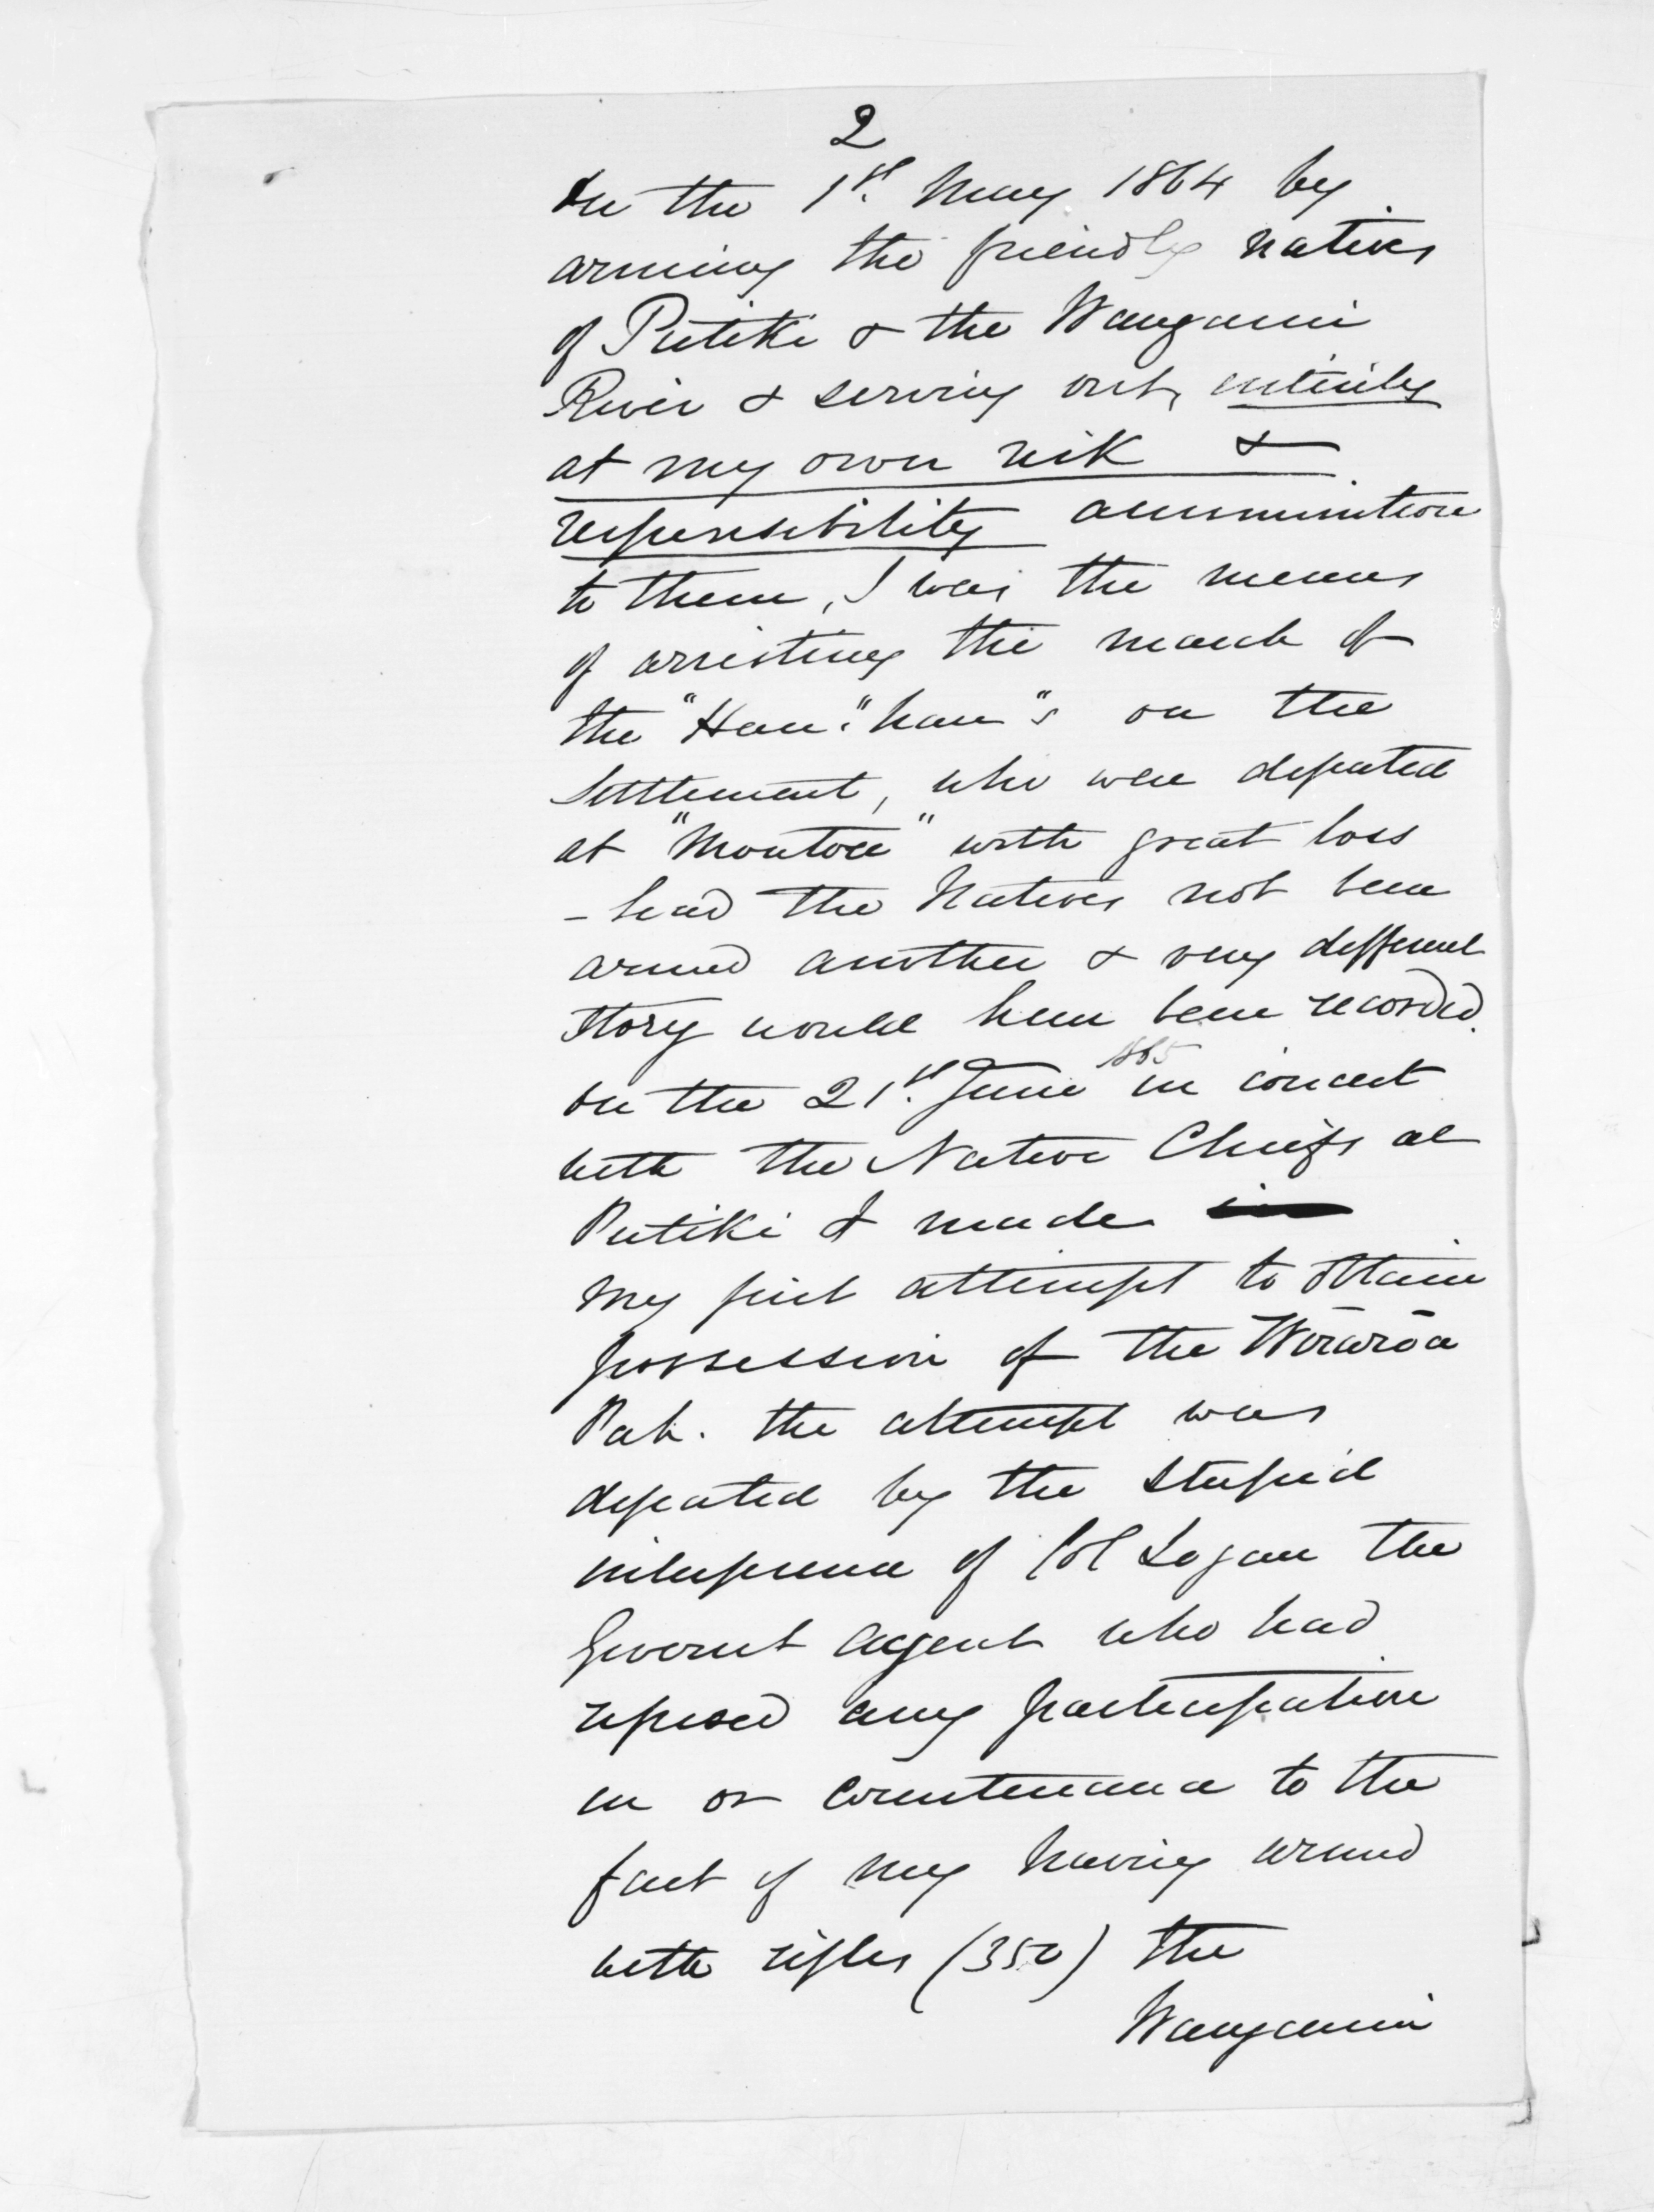 2
On the 1st. May 1864 by
arming the friendly natives
of Putiki & the Wanganui
River & serving out, entirely
at my own risk &
responsibility ammunition
to them, I was the means
of arresting the march of
the "Hau "hau"s on the
Settlement, who were defeated
at "Moutoa" with great loss
- had the Natives not been
armed another & very different
story would have been recorded.
On the 21st. June 1865 in concert
with the Native Chiefs at
Putiki I made
my first attempt to obtain
possession of the Weraroa
Pah. the attempt was
defeated by the stupid
interference of Col Logan the
Govermt Agent who had
refused any participation
in or countenance to the
fact of my having armed
with rifles (350) the
Wanganui